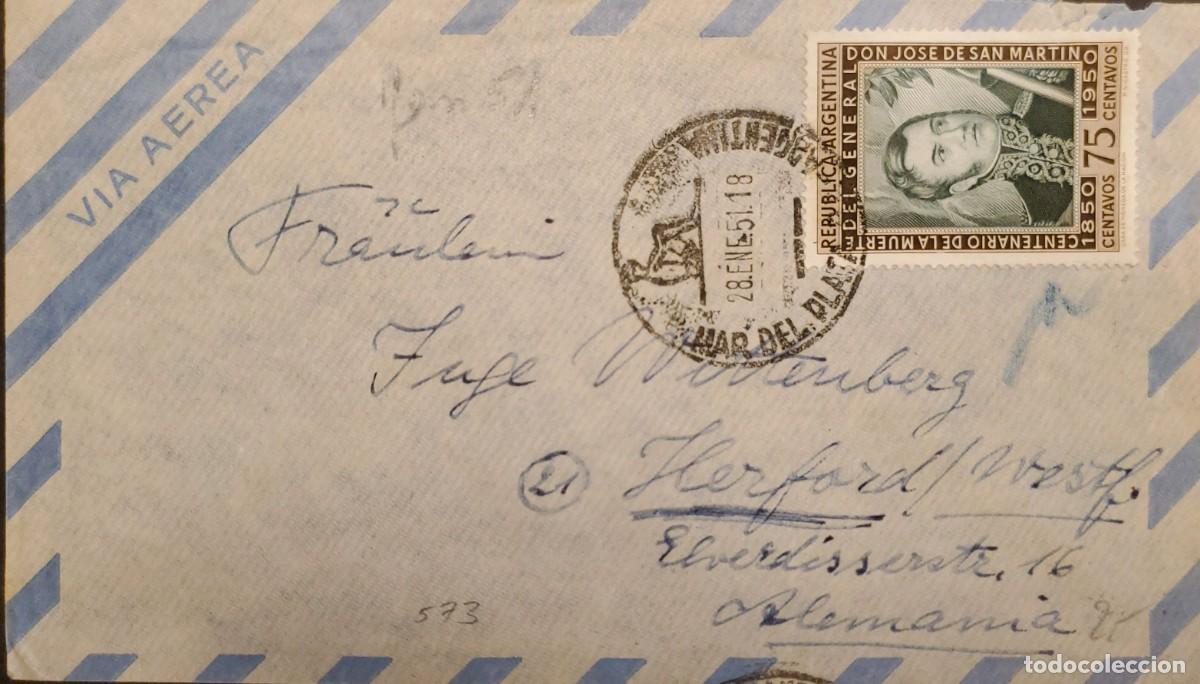 VIA AEREA
REPUBLICA ARGENTINA
CENTENARIO DE LA MUERTE DEL GENERAL DON JOSE DE SAN MARTIN
1850 1950
CENTAVOS 75 CENTAVOS
ARGENTINA
28.ENE.51.18
MAR DEL PLATA
Fräulein
Inge Wittenberg
21 Herford/Westf.
Elverdisserstr. 16
Alemania
573
todocoleccion